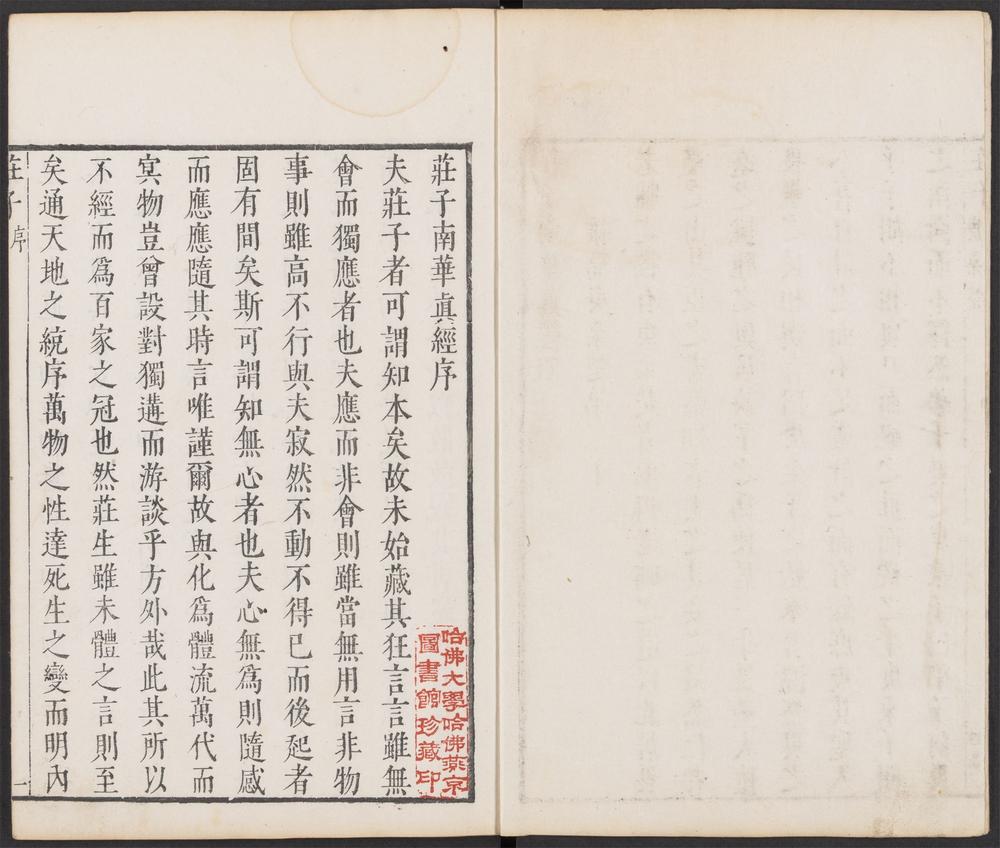 莊子南華眞經序
夫莊子者可謂知本矣故未始藏其狂言言雖無
會而獨應者也夫應而非會則雖當無用言非物
事則雖高不行與夫寂然不動不得已而後起者
固有間矣斯可謂知無心者也夫心無爲則隨感
而應應隨其時言唯謹爾故與化爲體流萬代而
冥物豈曾設對獨遘而游談乎方外哉此其所以
不經而爲百家之冠也然莊生雖未體之言則至
矣通天地之統序萬物之性達死生之變而明內
莊子 序
一
哈佛大學哈佛燕京
圖書館珍藏印